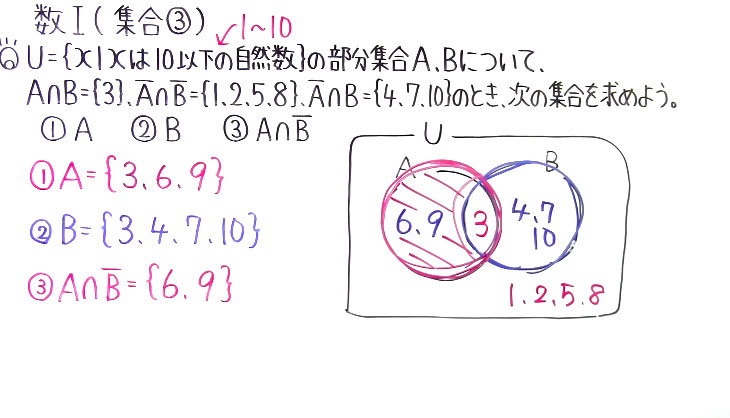 数Ⅰ(集合③)
1~10
⑥ U={x|xは10以下の自然数}の部分集合A、Bについて、
A∩B={3}、A̅∩B̅={1.2.5.8}、A̅∩B={4.7.10}のとき、次の集合を求めよう。
① A ② B ③ A∩B̅
U
A B
① A={3.6.9}
② B={3.4.7.10}
③ A∩B̅={6.9}
6.9 3 4.7
10
1.2.5.8